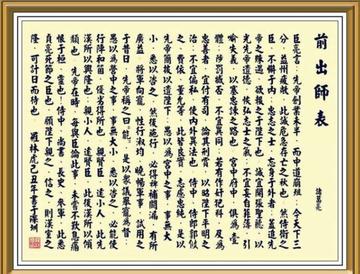 前出師表
諸葛亮
臣亮言：先帝創業未半，而中道崩殂，今天下三
分，益州疲敝，此誠危急存亡之秋也。然侍衛之
臣，不懈于內，忠志之士，忘身于外者，蓋追先
帝之殊遇，欲報之于陛下也。誠宜開張聖聽，以
光先帝遺德，恢弘志士之氣，不宜妄自菲薄，引
喻失義，以塞忠諫之路也。宮中府中，俱為壹
體，陟罰臧否，不宜異同。若有作奸犯科，及為
忠善者，宜付有司，論其刑賞，以昭陛下平明之
治，不宜偏私，使內外異法也。侍中、侍郎郭攸
之、費依、董允等，此皆良實，志慮忠純，是以
先帝簡拔以遺陛下。愚以為宮中之事，事無大
小，悉以咨之，然後施行，必得裨補闕漏，有所
廣益。將軍向寵，性行淑均，曉暢軍事，試用之
于昔日，先帝稱之曰能，是以眾議舉寵為督。
愚以為營中之事，事無大小，悉以咨之，必能使
行陣和睦，優劣得所也。親賢臣，遠小人，此先
漢所以興隆也；親小人，遠賢臣，此後漢所以傾
頹也。先帝在時，每與臣論此事，未嘗不歎息痛
恨于桓、靈也。侍中、尚書、長史、參軍，此悉
貞亮死節之臣也，願陛下親之、信之，則漢室之
隆，可計日而待也。 羅林虎己丑年書于深圳